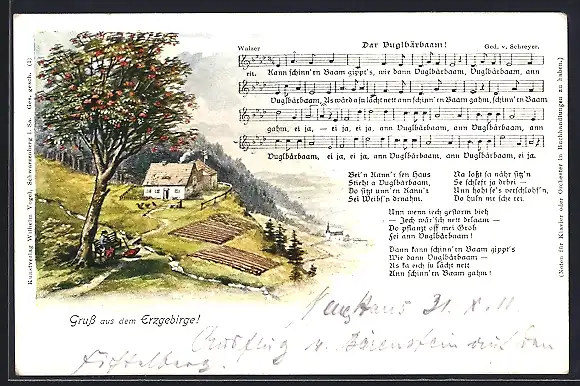 Dar Vuglbärbaam!
Walzer
Ged. v. Schreyer.
Kann schinn'rn Baam gippt's, wie dann Vuglbärbaam, Vuglbärbaam, ann
Vuglbärbaam, As wärd a su lächt nett ann schinn'rn Baam gahm, schinn'rn Baam
gahm, ei ja, — ei ja, ei ja, ann Vuglbärbaam, ann Vuglbärbaam, ann
Vuglbärbaam, ei ja, ei ja, ann Vuglbärbaam, ann Vuglbärbaam, ei ja.
Bei'n Kann'r sen Haus
Stieht a Vuglbärbaam,
Do sitzt unn'rn Kann'r
Sei Weibs'n drnahm.
Na loßt sa nähr sitz'n
Se schleft ja drbei —
Unn hobt se's verschlofs'n,
Do huln mr sche rei.
Unn wenn iech gestorm bieh
— Iech wär'sch nett drlaam —
Do pflanzt off mei Grob
Fei ann Vuglbärbaam!
Dann kann schinn'rn Baam gippt's
Wie dann Vuglbärbaam —
As ka eich su lächt nett
Ann schinn'rn Baam gahm!
Kunstverlag Wilhelm Vogel, Schwarzenberg i. Sa. Ges. gesch. (3)
(Noten für Klavier oder Orchester in Buchhandlungen zu haben.)
Gruß aus dem Erzgebirge!
31. X. 11
Ausflug v. Bärenstein auf den
Fichtelberg.